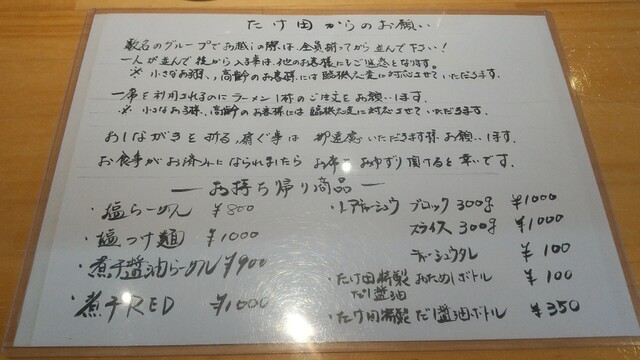 たけ田からのお願い
数名のグループでお越しの際は、全員揃ってから並んで下さい!
一人が並んで後から入る事は、他のお客様にもご迷惑となります。
※ 小さなお子様、高齢のお客様には臨機応変に対応させていただきます。
一席を利用されるのにラーメン1杯のご注文をお願いします。
※ 小さなお子様、高齢のお客様には臨機応変に対応させて いただきます。
おしながきを折る、扇ぐ事は ご遠慮いただきます様お願いします。
お食事がお済みになられましたら お席をおゆずり頂けると幸いです。
ー お持ち帰り商品 ー
・塩らーめん ¥800
・塩つけ麺 ¥1000
・煮干醤油らーめん ¥900
・煮干RED ¥1000
・レアチャーシュウ ブロック 300g ¥1000
スライス 300g ¥1000
チャーシュウタレ ¥100
・たけ田特製 だし醤油 おためしボトル ¥100
・たけ田特製 だし醤油ボトル ¥350